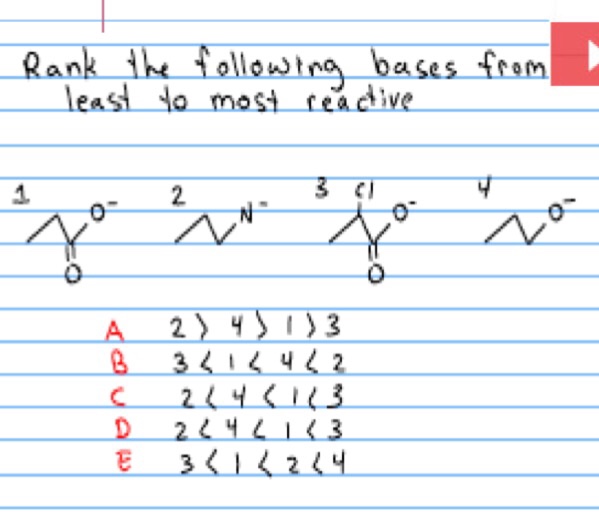 Rank the following bases from
least to most reactive
1 2 3 4
Cl
O⁻ N⁻ O⁻ O⁻
O O
A 2 > 4 > 1 > 3
B 3 < 1 < 4 < 2
C 2 < 4 < 1 < 3
D 2 < 4 < 1 < 3
E 3 < 1 < 2 < 4